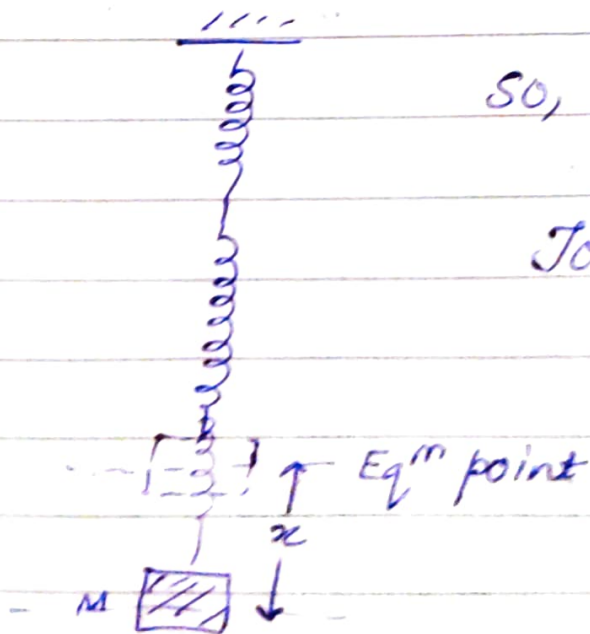 So,
Eqᵐ point
x
M